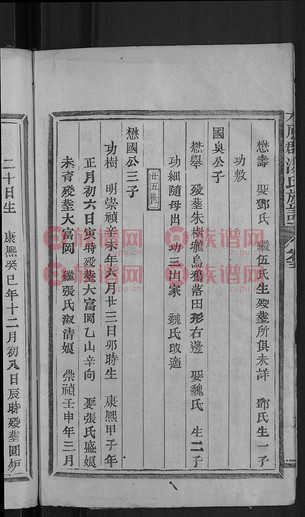 懋壽 娶鄧氏 繼伍氏生歿塟所俱未詳 鄧氏生一子
功敷
國臭公子
懋舉 歿塟朱樹壠烏鴉落田形右邊 娶魏氏 生二子
功細隨母出 功三出家 魏氏改適
廿五世
懋國公三子
功樹 明崇禎辛未年六月廿三日卯時生 康熙甲子年
正月初六日寅時歿塟大富閔乙山辛向 娶張氏盛娛
未育歿塟大富閔 繼張氏淑清娛 崇禎壬申年三月
二十日生 康熙癸巳年十二月初八日辰時歿塟圓炉
族谱网